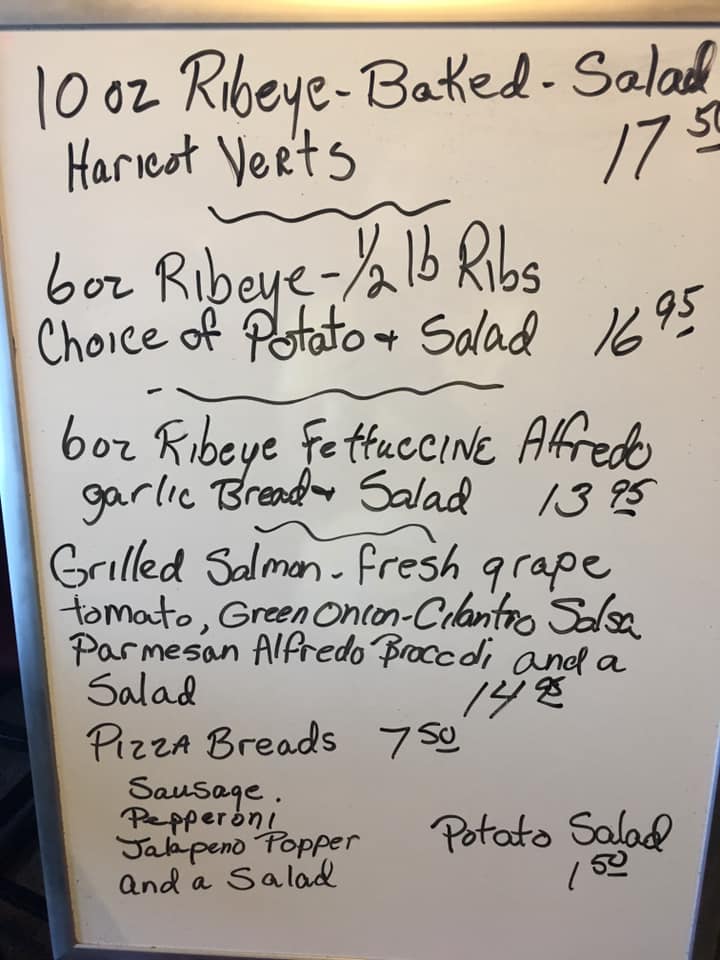 10 oz Ribeye-Baked-Salad
Haricot Verts 17 50
6oz Ribeye-1/2 lb Ribs
Choice of Potato + Salad 16 95
6oz Ribeye Fettuccine Alfredo
garlic Bread + Salad 13 95
Grilled Salmon - Fresh grape
tomato, Green Onion-Cilantro Salsa
Parmesan Alfredo Broccoli and a
Salad 14 95
Pizza Breads 7 50
Sausage.
Pepperoni
Jalapeno Popper
and a Salad
Potato Salad
1 50